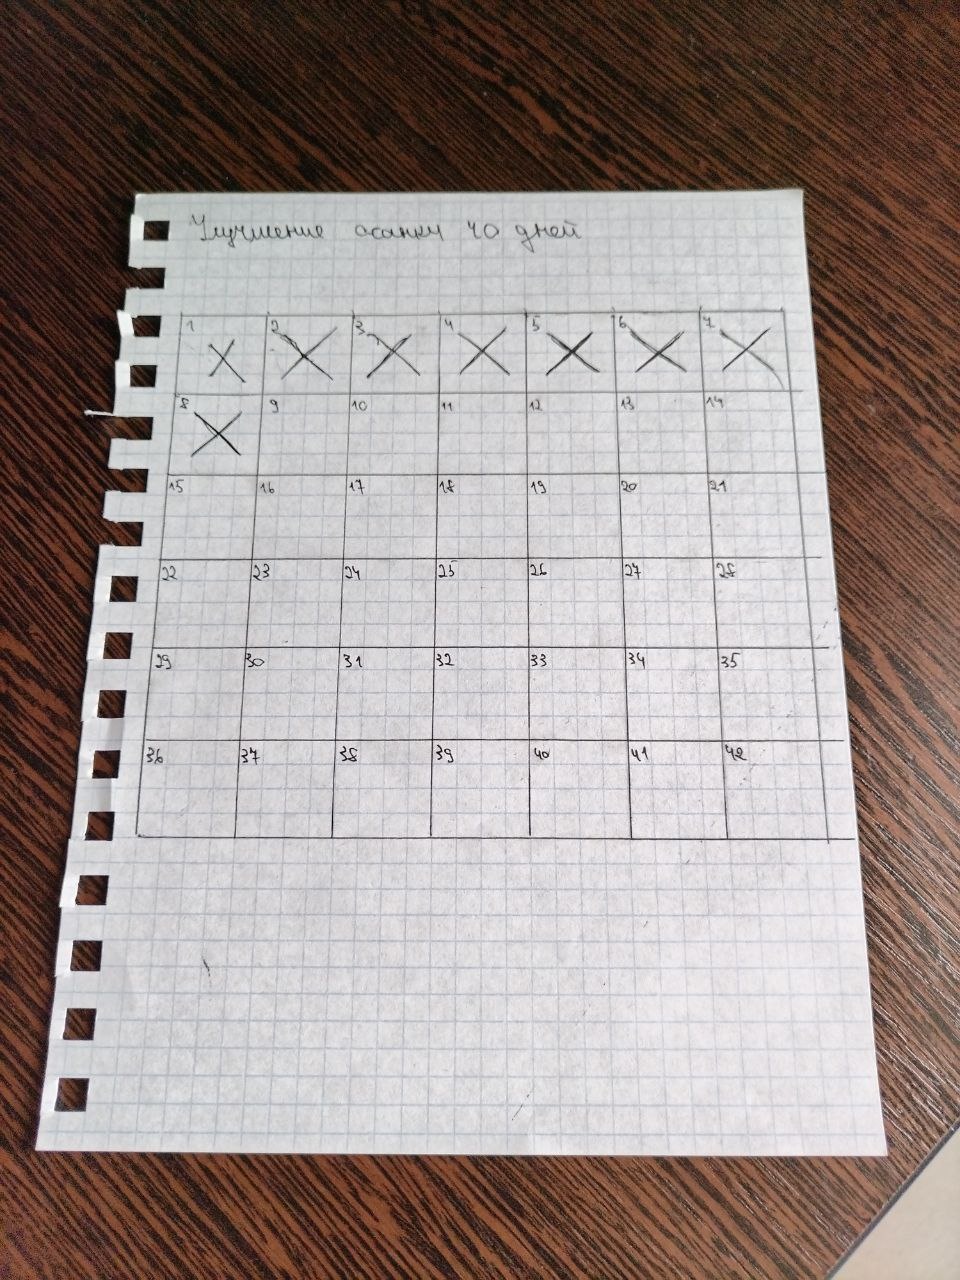 Улучшение осанки 40 дней
1 2 3 4 5 6 7
8 9 10 11 12 13 14
15 16 17 18 19 20 21
22 23 24 25 26 27 28
29 30 31 32 33 34 35
36 37 38 39 40 41 42